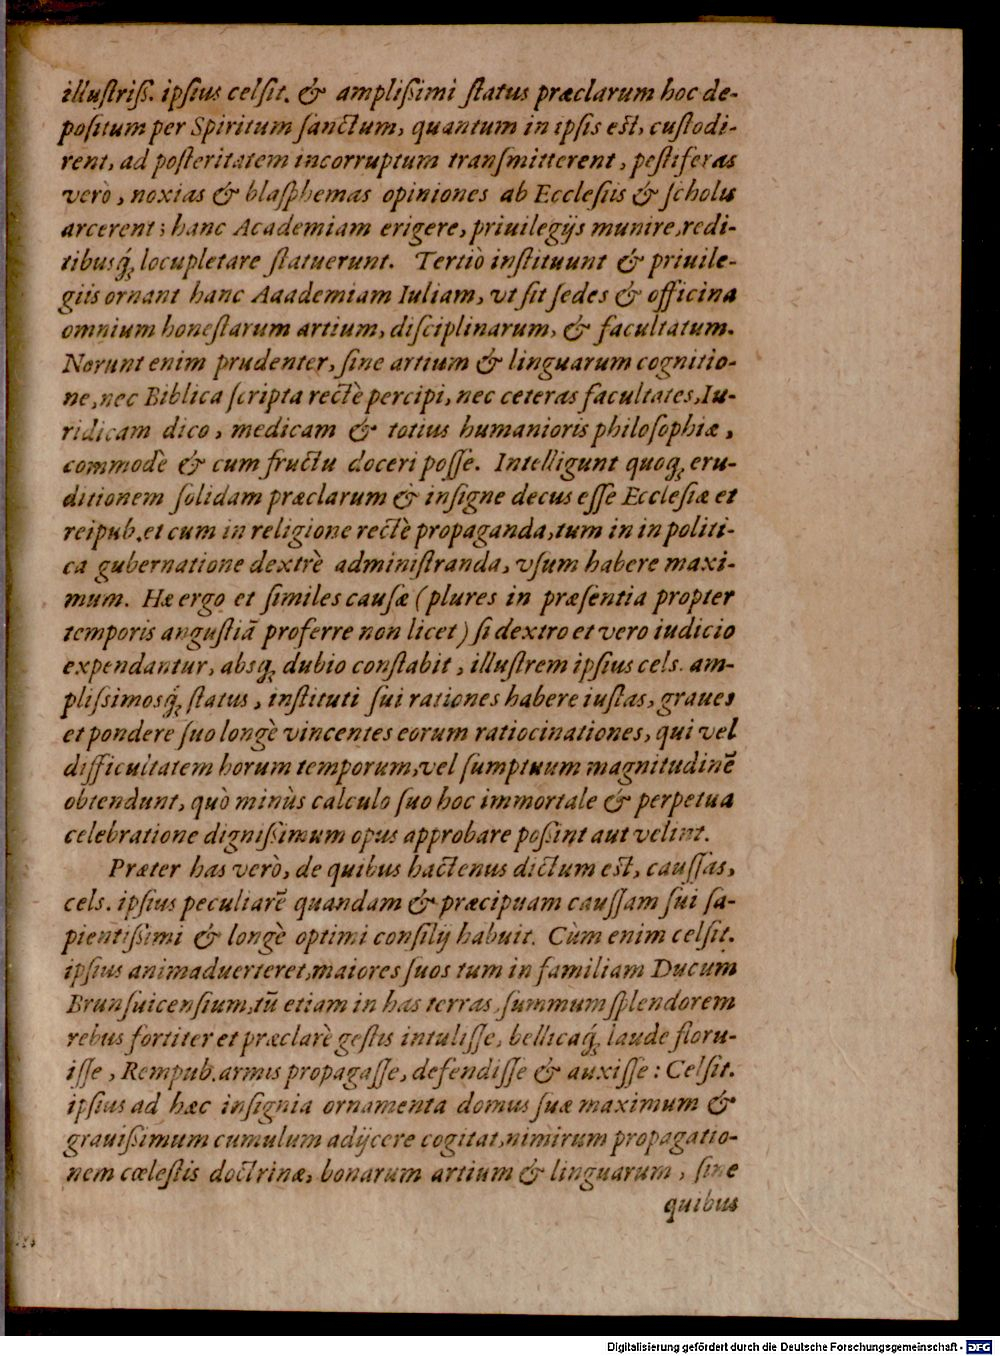 illuſtriſſ. ipſius celſit. & ampliſſimi ſtatus præclarum hoc de-
poſitum per Spiritum ſanctum, quantum in ipſis eſt, cuſtodi-
rent, ad poſteritatem incorruptum tranſmitterent, peſtiferas
verò, noxias & blaſphemas opiniones ab Eccleſiis & ſcholis
arcerent; hanc Academiam erigere, priuilegijs munire, redi-
tibusq́; locupletare ſtatuerunt. Tertiò inſtituunt & priuile-
giis ornant hanc Aaademiam Iuliam, vt ſit ſedes & officina
omnium honeſtarum artium, diſciplinarum, & facultatum.
Norunt enim prudenter, ſine artium & linguarum cognitio-
ne, nec Biblica ſcripta rectè percipi, nec ceteras facultates, Iu-
ridicam dico, medicam & totius humanioris philoſophiæ,
commodè & cum fructu doceri poſſe. Intelligunt quoq; eru-
ditionem ſolidam præclarum & inſigne decus eſſe Eccleſiæ et
reipub. et cum in religione rectè propaganda, tum in in politi-
ca gubernatione dextrè adminiſtranda, vſum habere maxi-
mum. Hæ ergo et ſimiles cauſæ (plures in præſentia propter
temporis anguſtiā proferre non licet) ſi dextro et vero iudicio
expendantur, absq; dubio conſtabit, illuſtrem ipſius cels. am-
pliſsimosq́; ſtatus, inſtituti ſui rationes habere iuſtas, graues
et pondere ſuo longè vincentes eorum ratiocinationes, qui vel
difficultatem horum temporum, vel ſumptuum magnitudinē
obtendunt, quò minùs calculo ſuo hoc immortale & perpetua
celebratione digniſſimum opus approbare poſſint aut velint.
Præter has verò, de quibus hactenus dictum eſt, cauſſas,
cels. ipſius peculiarē quandam & præcipuam cauſſam ſui ſa-
pientiſſimi & longè optimi conſilij habuit. Cùm enim celſit.
ipſius animaduerteret, maiores ſuos tum in familiam Ducum
Brunſuicenſium, tū etiam in has terras, ſummum ſplendorem
rebus fortiter et præclarè geſtis intuliſſe, bellicaq́; laude floru-
iſſe, Rempub. armis propagaſſe, defendiſſe & auxiſſe: Celſit.
ipſius ad hæc inſignia ornamenta domus ſuæ maximum &
grauiſſimum cumulum adijcere cogitat, nimirum propagatio-
nem cœleſtis doctrinæ, bonarum artium & linguarum, ſine
quibus
Digitalisierung gefördert durch die Deutsche Forschungsgemeinschaft - DFG